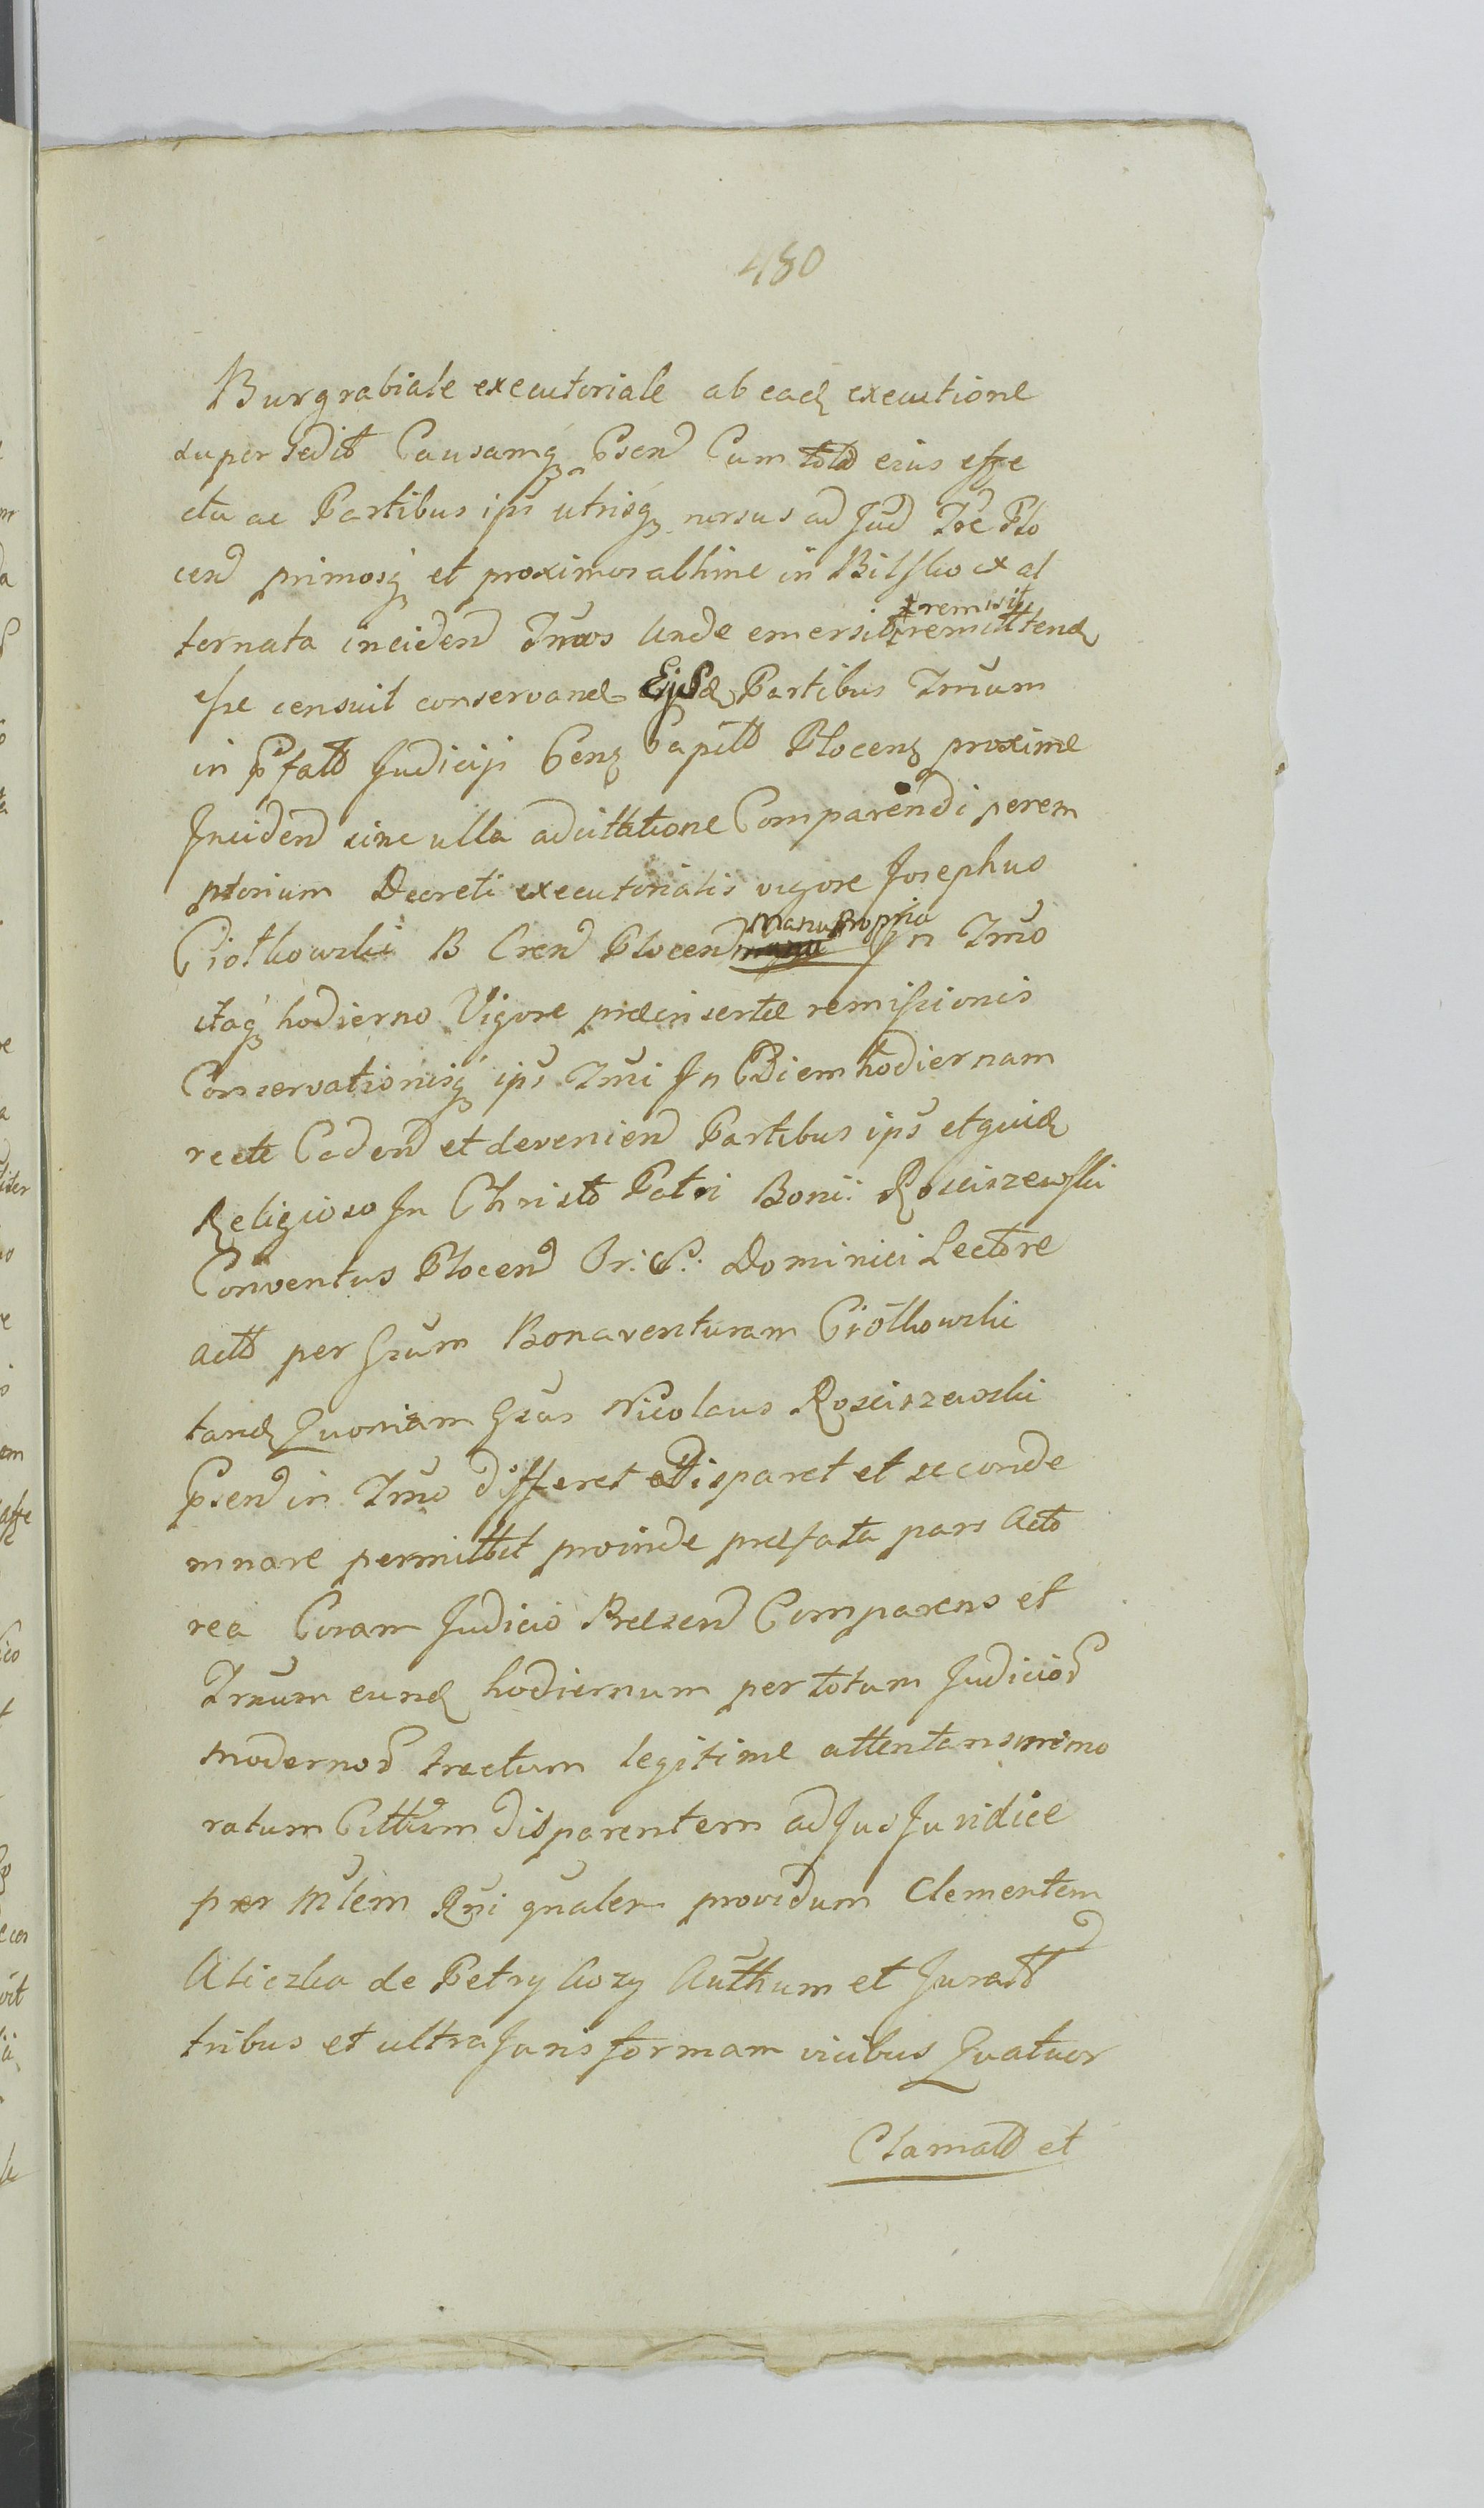 480
Burgrabiale executoriale ab eadꝫ executione
supersedit Causamqꝫ Psen Cum toto eius effe
ctu ac Partibus ips utrisqꝫ rursus ad Jud Tre Plo
cen primosqꝫ et proximos abhinc in Bilsko ex al
ternata inciden Tnros Unde emersit remittendꝫ
et remisit
esse censuit conservandꝫ Ejsdꝫ Partibus Trnum
in Pfatto Judicijs Cenꝫ Capitt Plocenꝫ proxime
Inciden sine ulla adcittatione Comparendi perem
ptorium Decreti executorialis vigore Josephus
Ciołkowski B Cren Plocen Manu propria In Trno
itaqꝫ hodierno Vigore præinsertæ remissionis
Conservationisqꝫ ips Trni In Diem hodiernam
recte Caden et devenien Partibus ips et quidꝫ
Religioso In Christo Patri Bonii: Rosciszewski
Conventus Plocen Or: S: Dominici Lectore
actt per Gsum Bonaventuram Ciołkowski
tandꝫ Quoniam Gsus Nicolaus Rosciszewski
Psen in Trno differet et disparet et se conde
mnare permittit proinde præfata pars Acto
rea Coram Judicio Præsen Comparens et
Trnum eundꝫ hodiernum per totum Judicior
modernor tractum legitime attentans memo
ratum Cittum disparentem ad Jus Juridice
per Mlem Rni gnalem providum Clementem
Aliczka de Petrykozy Authum et Juratt
tribus et ultra Juris formam vicibus Quatuor
Clamatt et